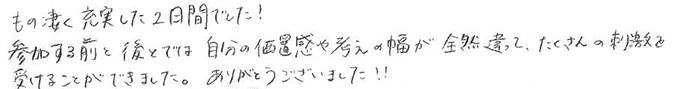 もの凄く充実した2日間でした!
参加する前と後とでは自分の価置感や考えの幅が全然違って、たくさんの刺激を
受けることができました。ありがとうございました!!